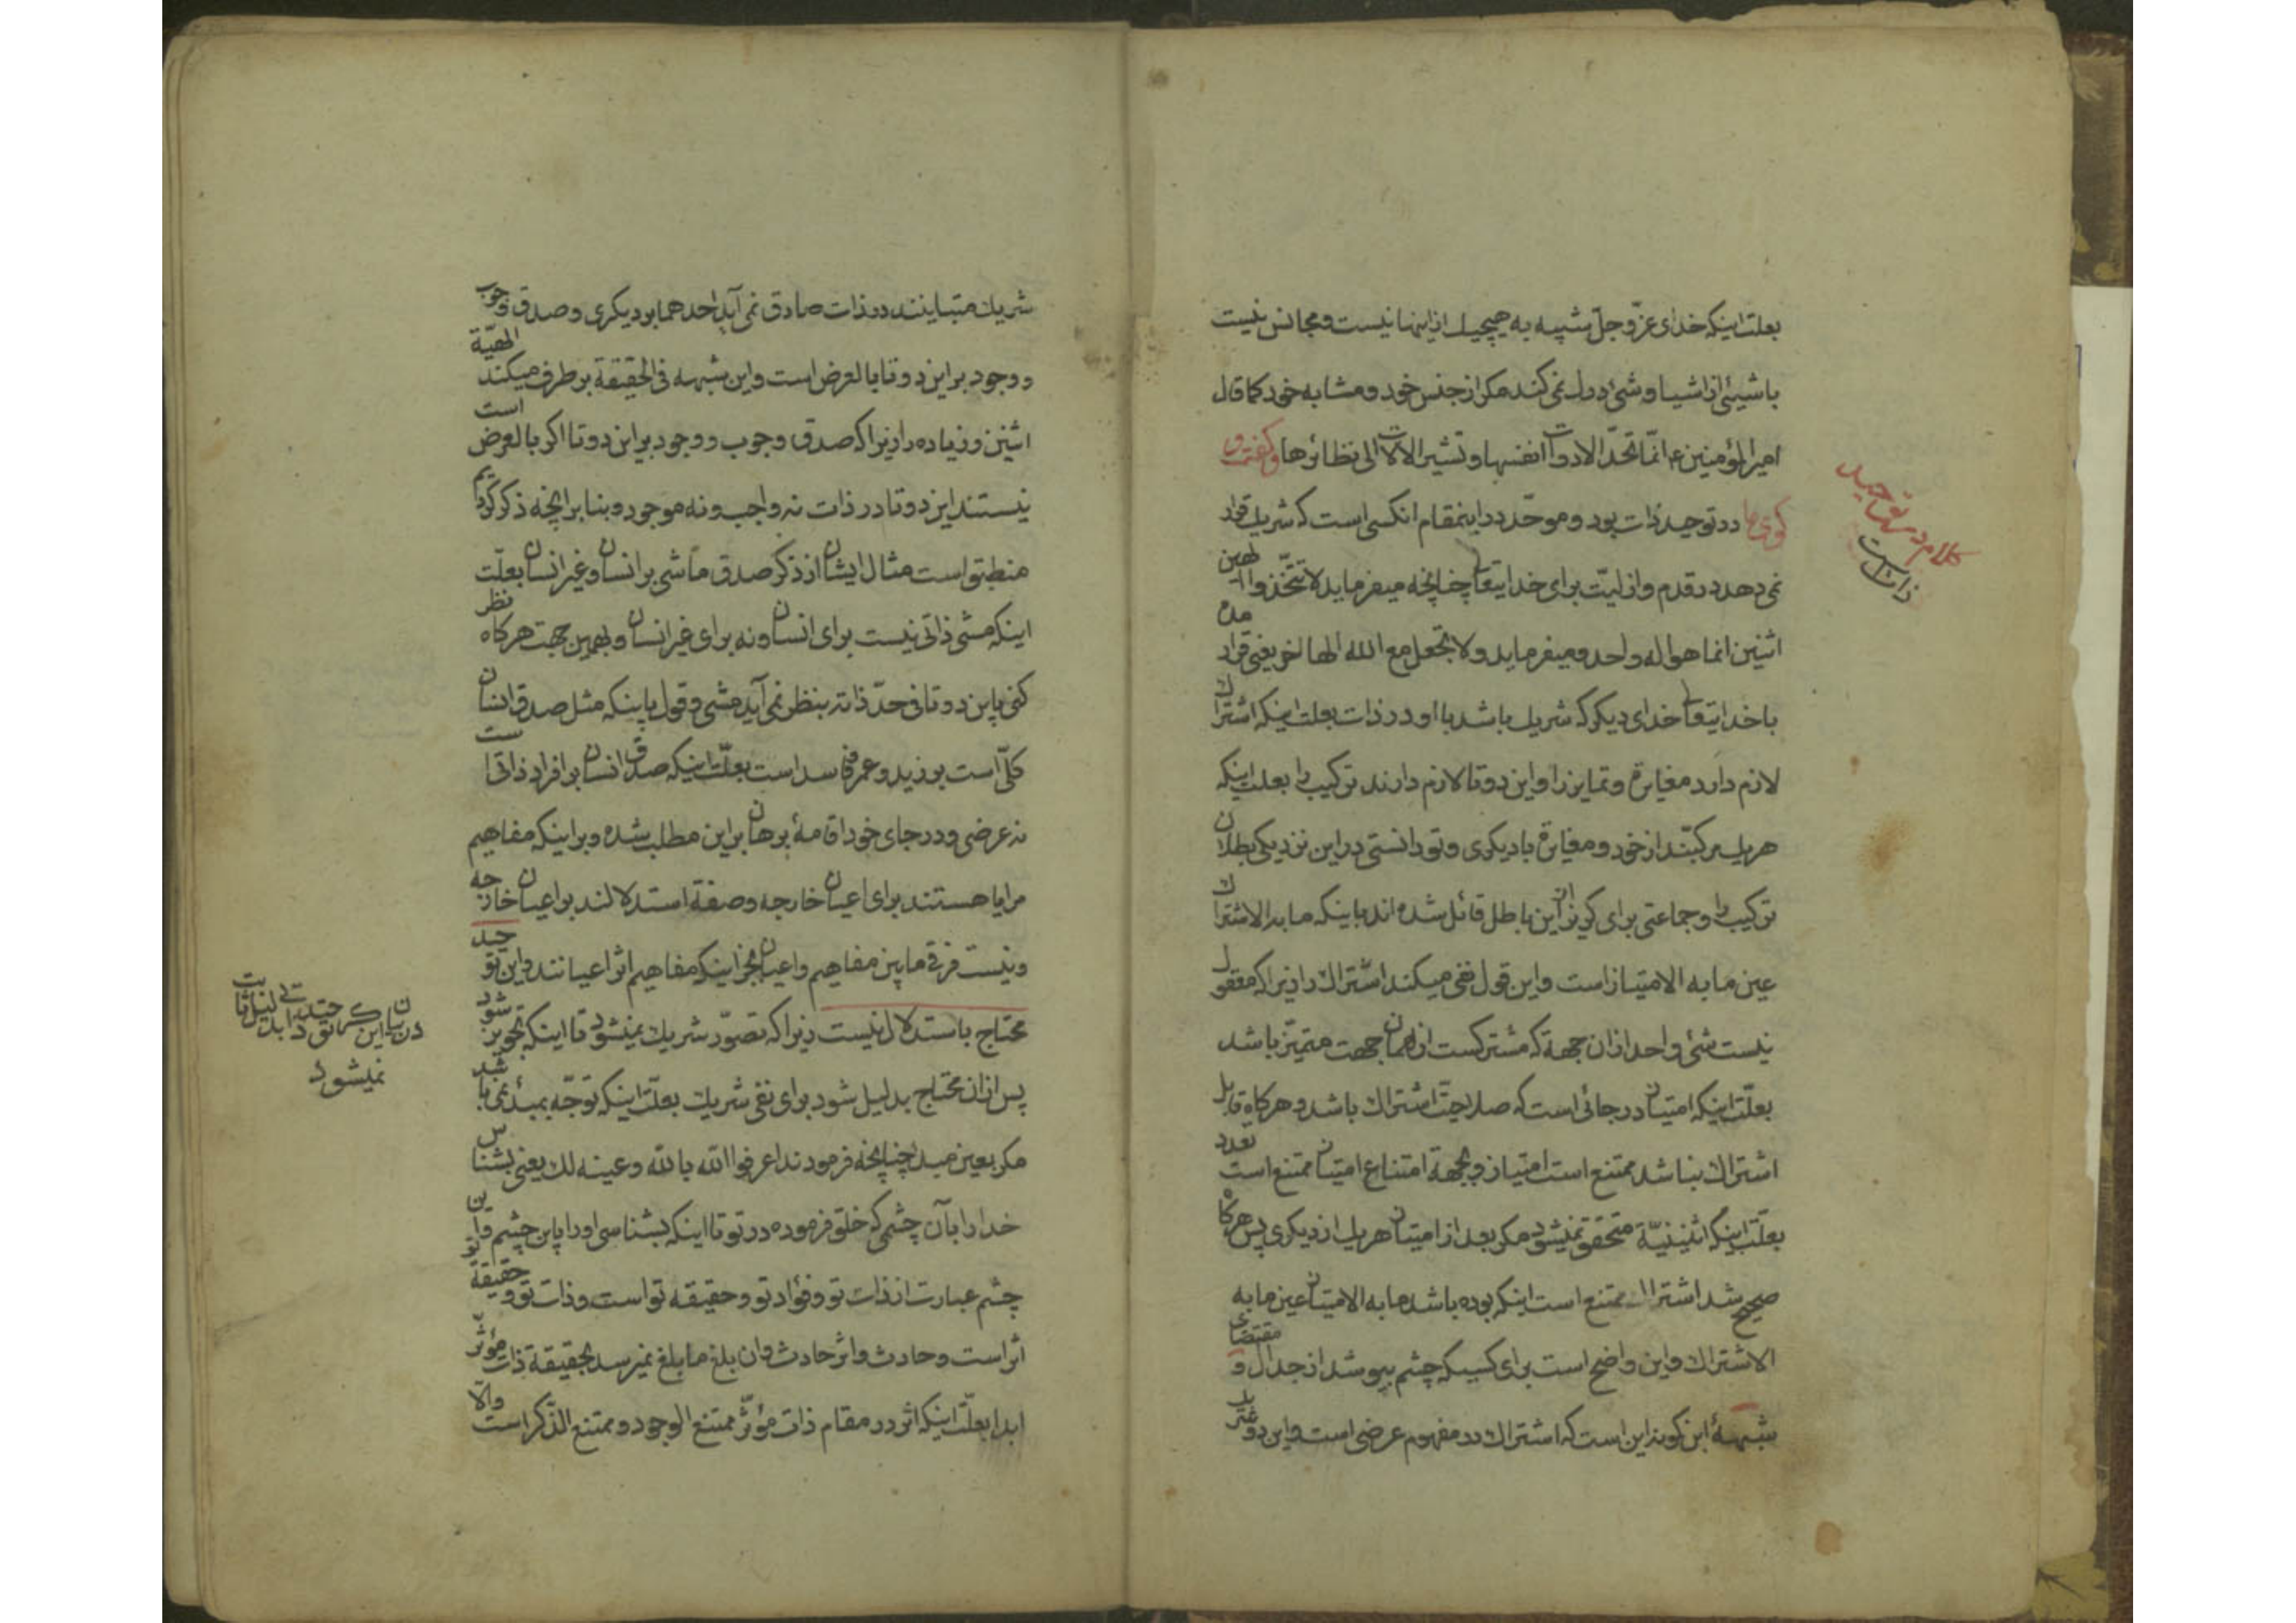 بعلت اینکه خدای عزّ و جلّ شبیه به هیچیک از اینها نیست و مجانس نیست
با شیئی از اشیا و شئ ادراک نمی کند مکر از جنس خود و مشابه خود کما قال
امیرالمؤمنین ع انّما تحدّ الادوات انفسها و تشیر الالات الی نظائرها و کفتن
در توحید ذات بود و موحّد در اینمقام انکسی است که شریک قرار
نمی دهد در قدم و ازلیّت برای خدایتعالی چنانچه میفرماید لا تتّخذوا الهین
اثنین انما هو اله واحد و میفرماید و لا تجعل مع الله الها اخر یعنی قرار مده
با خدایتعالی خدای دیکر که شریک باشد با او در ذات بعلت اینکه اشتراک
لازم دارد مغایرة و تمایز را و این دو تا لازم دارند ترکیب را بعلت اینکه
هریک مرکبّند از خود و مغایرة با دیکری و تو دانستی در این نزدیکی بطلان
ترکیب را و جماعتی برای کریز از این باطل قائل شده اند باینکه ما به الاشتراک
عین ما به الامتیاز است و این قول نفی میکند اشتراک را زیرا که معقول
نیست شئ واحد از ان جهة که مشترکست از همان جهت متمیّز باشد
بعلّت اینکه امتیاز در جائی است که صلاحیّت اشتراک باشد و هرکاه قابل
اشتراک نباشد ممتنع است امتیاز و بجهة امتناع امتیاز ممتنع است تعدد
بعلّت اینکه اثنینیّة متحقق نمیشود مکر بعد از امتیاز هریک از دیکری پس هرکاه
صحیح شد اشتراک ممتنع است اینکه بوده باشد ما به الامتیاز عین ما به
الاشتراک و این واضح است برای کسیکه چشم بپوشد از جدال و مقتضای
شبههٔ ابن کمونه این است که اشتراک در مفهوم عرضی است و این دو
کلام در توحید
ذات است
شریک متباینند در ذات صادق نمی آید احدهما بر دیکری و صدق وجوب
و وجود بر این دو تا بالعرض است و این شبهه فی الحقیقة بر طرف میکند الهیّة
اثنین و زیاده را زیرا که صدق وجوب و وجود بر این دو تا اکر بالعرض است
نیستند این دو تا در ذات نه واجب و نه موجود و بنا بر انچه ذکر کردیم
منطبق است مثال ایشان از ذکر صدق ماشی بر انسان و غیر انسان بعلّت
اینکه مشی ذاتی نیست برای انسان و نه برای غیر انسان و بهمین جهت هرکاه نظر
کنی باین دو تا فی حدّ ذاته بنظر نمی آید مشی و قول باینکه مثل صدق انسان
کلّی است بر زید و عمرو فاسد است بعلّت اینکه صدق انسان بر افراد ذاتی است
نه عرضی و در جای خود اقامهٔ برهان بر این مطلب شده و بر اینکه مفاهیم
مرایا هستند برای اعیان خارجه و صفة استدلالند بر اعیان خارجه
و نیست فرق ما بین مفاهیم و اعیان بجز اینکه مفاهیم اثر اعیانند و این توحید
محتاج باستدلال نیست زیرا که تصوّر شریک نمیشود تا اینکه تجویز شود
پس از ان محتاج بدلیل شود برای نفی شریک بعلّت اینکه توجّه بمبدأ نمی باشد
مکر بعین مبدأ چنانچه فرمودند اعرفوا الله بالله و عینه لک یعنی بشناس
خدا را بآن چشمی که خلق فرموده در تو تا اینکه بشناسی او را باین چشم و این
چشم عبارت از ذات تو و فؤاد تو و حقیقه تو است و ذات تو و حقیقة تو
اثر است و حادث و اثر حادث و ان بلغ ما بلغ نمیرسد بحقیقة ذات مؤثّر
ابدا بعلّت اینکه اثر در مقام ذات مؤثّر ممتنع الوجود و ممتنع الذّکر است والّا
در بیان این که توحید
بدلیل ثابت
نمیشود